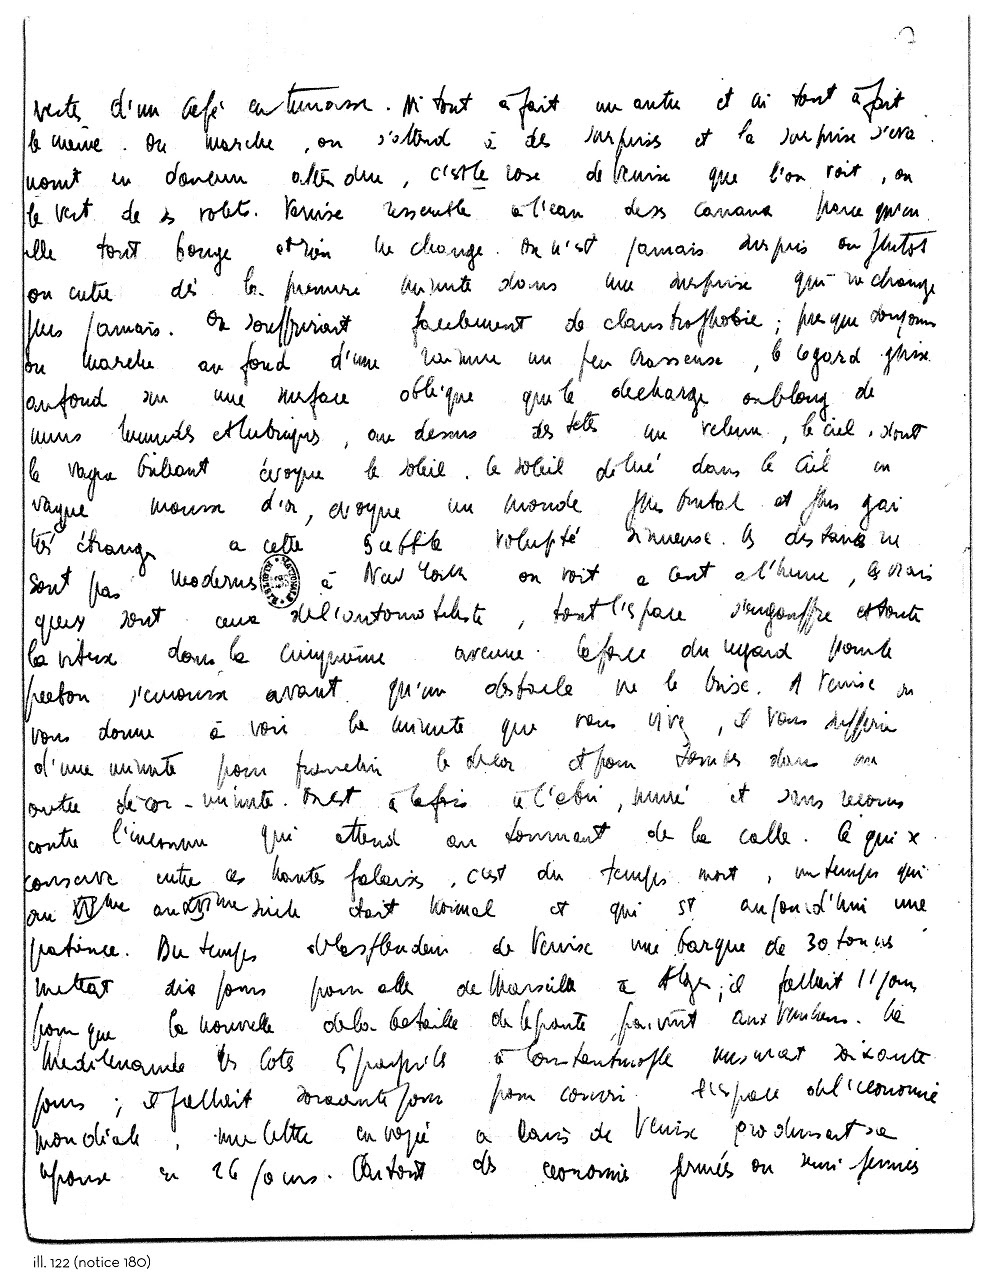 verte d'un café en terrasse. Ni tout à fait un autre et ni tout à fait
le même. On marche, on s'attend à des surprises et la surprise s'éva
nouit en douceur attendue, c'est le rose de Venise que l'on voit, ou
le vert de ses volets. Venise ressemble à l'eau de ses canaux parce qu'en
elle tout bouge et rien ne change. On n'est jamais surpris ou plutôt
on entre dès la première minute dans une surprise qui ne change
plus jamais. On souffrirait facilement de claustrophobie ; presque toujours
on marche au fond d'une rainure un peu crasseuse, le regard glisse
au fond sur une surface oblique que le décharge oblong de
murs humides et lubriques, au dessus des têtes un velum, le ciel, dont
le vague brillant évoque le soleil. le soleil délué dans le ciel en
vague mousse d'or, évoque un monde plus brutal et plus gai
très étranger a cette subtile volupté sinueuse. Les distances ne
sont pas modernes à New York on voit a cent a l'heure, les vrais
yeux sont ceux de l'automobiliste, tout l'espace s'engouffre et toute
la vitesse dans la cinquième avenue. la force du regard pour le
piéton s'émousse avant qu'un obstacle ne le brise. A Venise on
vous donne à voir la minute que vous vivez, il vous suffira
d'une minute pour franchir le décor et pour tomber dans un
autre décor-minute. On est à la fois à l'abri, muré et sans recours
contre l'inconnu qui attend au tournant de la calle. Ce qui se
conserve entre ces hautes falaises, c'est du temps mort, un temps qui
au XVème au XVIème siècle était normal et qui est aujourd'hui une
patience. Du temps de la splendeur de Venise une barque de 30 tonnes
mettait dix jours pour aller de Marseille à Alger ; il fallait 11 jours
pour que la nouvelle de la bataille de Lépante parvint aux Vénitiens. La
Méditerranée des côtes à Constantinople mesurait soixante
jours ; il fallait soixante jours pour couvrir l'espace de l'économie
mondiale ; une lettre envoyée a de Venise produisait sa
réponse en 26 jours. C'étaient des économies fermées ou semi fermées
ill. 122 (notice 180)